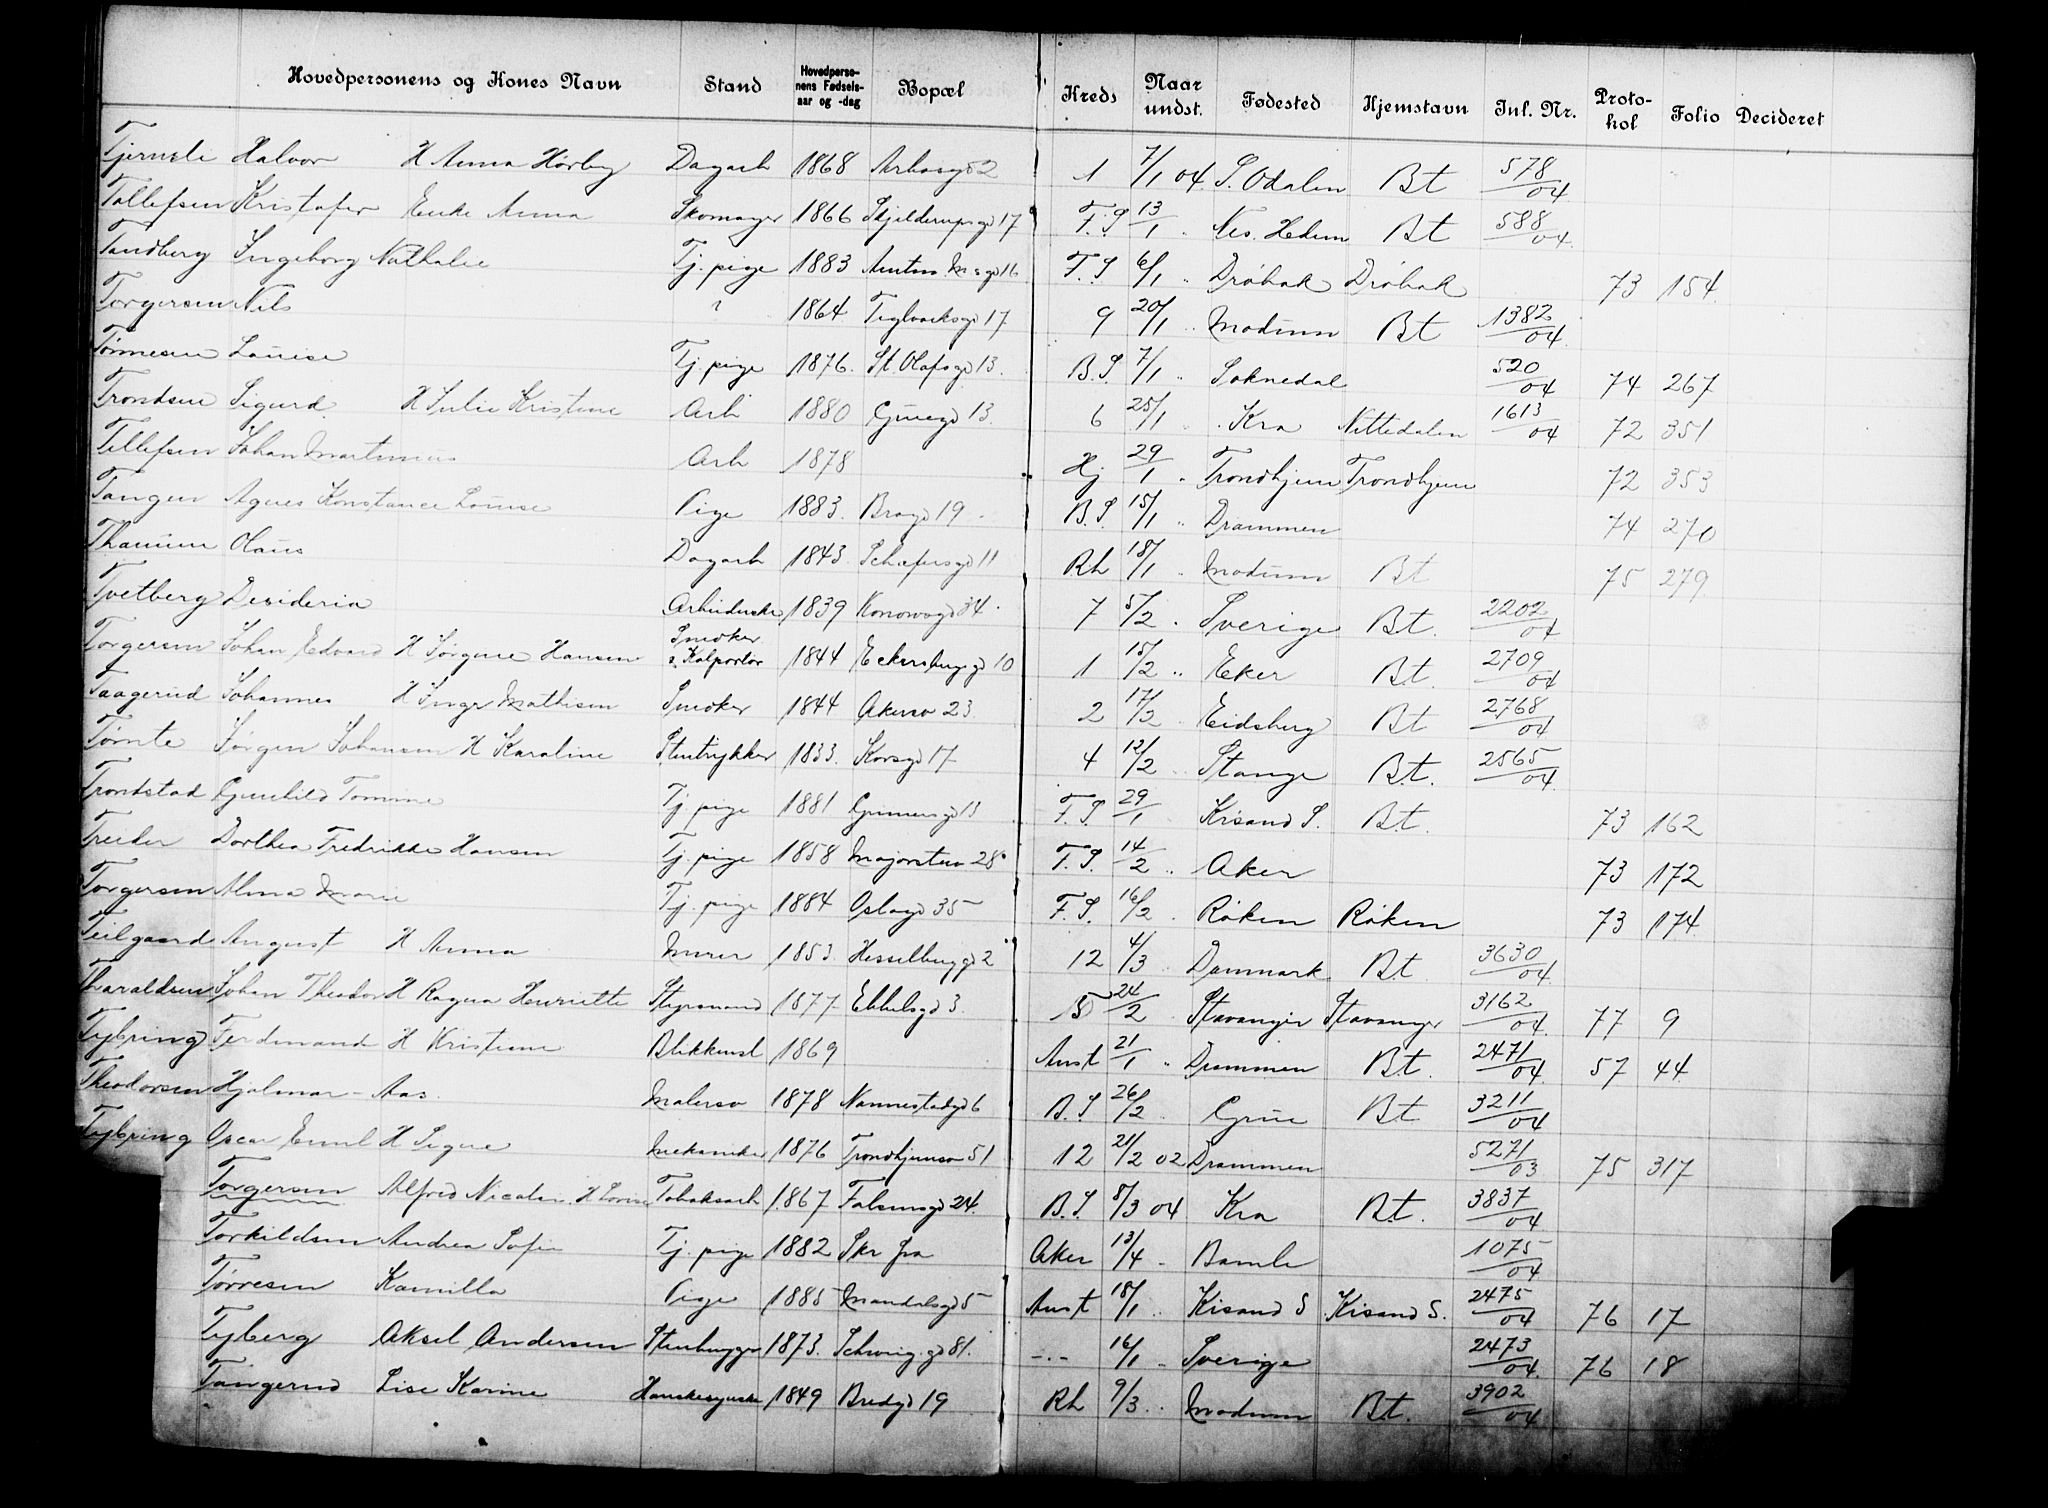 Hovedpersonens og Kones Navn Stand Hovedpersonens Fødselsaar og -dag Bopæl Kreds Naar undst. Fødested Hjemstavn Inl. Nr. Protokol Folio Decideret
Tjernsli Halvor H Anna Hørby Dagarb 1868 1 7/1 04 S. Odalen Bt 578/04
Tollefsen Kristofer Enke Anna Skomager 1866 Skjelderupsgd 17 F.S 13/1 " Nes. Hedem Bt 588/04
Tandberg Ingeborg Nathalie Tj. pige 1883 Amtm M sgd 16 F.S 6/1 " Drøbak Drøbak 73 154
Torgersen Nils ? 1864 Teglverksgd 17 9 20/1 " Modum Bt 1382/04
Tønnesen Louise Tj. pige 1876. St. Olafsgd 13. B.S 7/1 " Soknedal 520/04 74 267
Trondsen Sigurd H Julie Kristine Arb 1880 Gruegd 13. 6 25/1 " Kra Nittedalen 1613/04 72 351
Tellefsen Johan Martinius Arb 1878 Hj 29/1 " Trondhjem Trondhjem 72 353
Tangen Agnes Konstance Louise Pige 1883. Brogd 19 B.S 15/1 " Drammen 74 270
Thauum Olaus Dagarb 1843. Schæfersgd 11 Rh 18/1 " Modum Bt 75 279
Tvetberg Desideria Arbeiderske 1839 Konowsgd 34. 7 5/2 " Sverige Bt. 2202/04
Torgersen Johan Edvard H Jørgine Hansen Snedker s. Kolportør 1844 Eckersbergsgd 10 1 15/2 " Eker Bt. 2709/04
Taagerud Johannes H Inger Mathisen Snedker 1844 Akersv 23 2 17/2 " Eidsberg Bt 2768/04
Tømte Jørgen Johansen H Karoline Stentrykker 1833. Korsgd 17 4 12/2 " Stange Bt. 2565/04
Trondstad Gunhild Tomine Tj. pige 1881 Grünersgd 13 F.S. 29/1 Krisand S. Bt. 73 162
Treider Dorthea Fredrikke Hansen Tj. pige 1858 Majorstuv 28 F.S. 14/2 " Aker 73 172
Torgersen Alma Marie Tj. pige 1884 Oslogd 35 F.S. 16/2 " Røken Røken 73 174
Teilgaard August H Anna Murer 1853 Hesselbergsgd 2 12 4/3 " Danmark Bt. 3630/04
Tharaldsen Johan Theodor H Ragna Henriette Styrmand 1877 Ebbelsgd 3. 5 24/2 Stavanger Stavanger 3162/04 77 9
Tybring Ferdinand H Kristine Blikkensl 1869 Anst 21/1 " Drammen Bt. 2471/04 57 44
Theodorsen Hjalmar - Aas. Malersv 1878 Nannestadgd 6 B.S 26/2 " Grue Bt 3211/04
Tybring Oscar Emil H Signe Mekaniker 1876 Trondhjemsv 51 12 21/2 02 Drammen 5271/03 75 317
Torgersen Alfred Nicolai H Lovise Tobaksarb 1867 Falsensgd 24. B.S. 8/3 04 Kra Bt. 3837/04
Torkildsen Andrea Sofie Tj. pige 1882 Skr fra Aker 13/4 " Bamle 1075/04
Tørresen Kamilla Pige 1885 Mandalsgd 5 Anst 18/1 " Krisand S Krisand S. 2475/04 76 17
Tyberg Aksel Andersen Stenhugger 1873. Schweig.gd 81. -"- 16/1 " Sverige 2473/04 76 18
Tangerud Lise Karine Hanskesyerske 1849 Bredgd 19 Rh 9/3 " Modum Bt. 3902/04